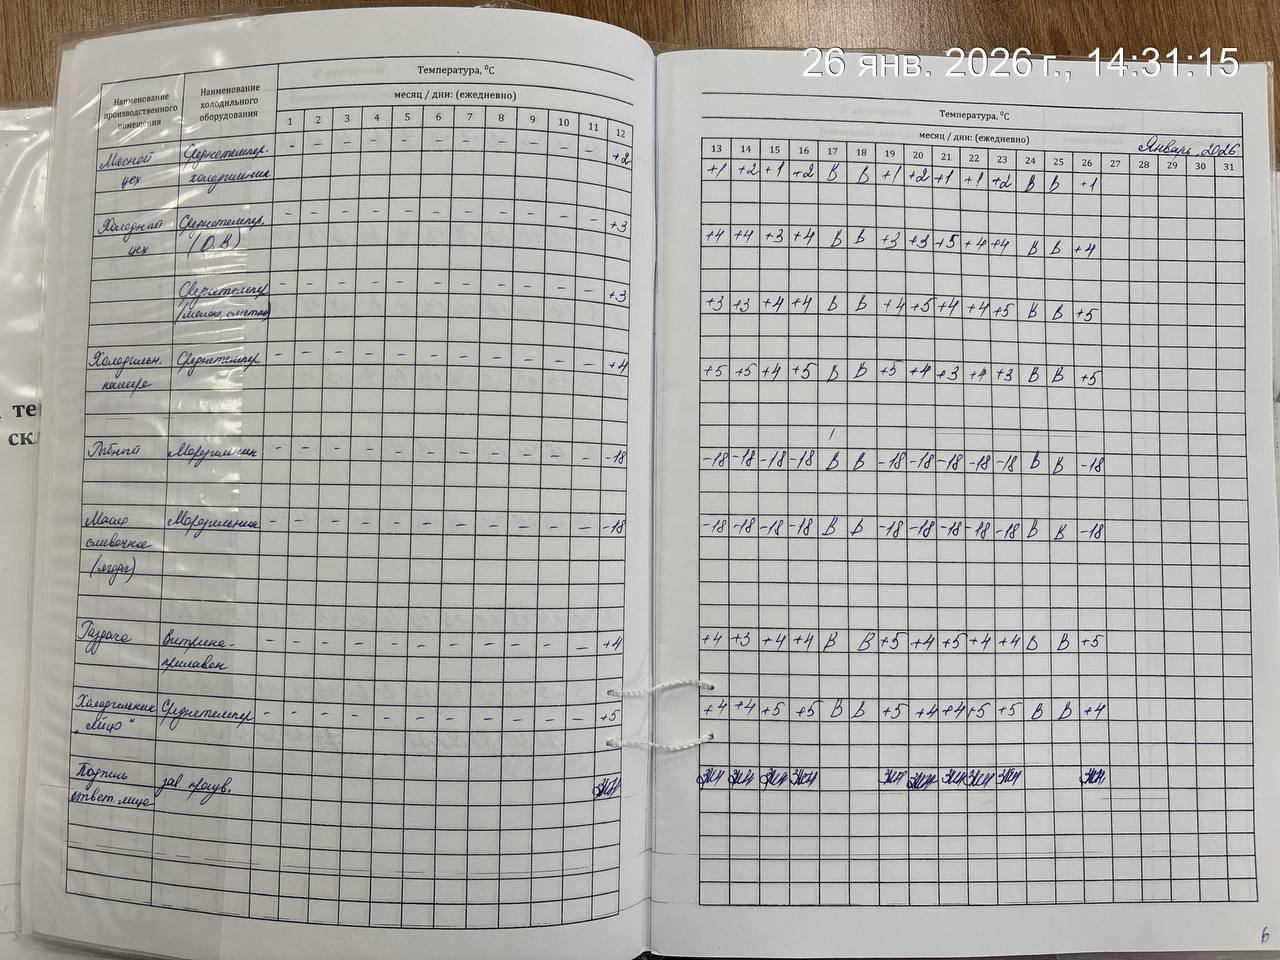 26 янв. 2026 г., 14:31:15
Наименование производственного помещения
Наименование холодильного оборудования
Температура, ⁰С
месяц / дни: (ежедневно)
1 2 3 4 5 6 7 8 9 10 11 12
Мясной Среднетемпер. - - - - - - - - - - - +2
цех холодильник
Холодный Среднетемпер. - - - - - - - - - - - +3
цех (О.В)
Среднетемпер - - - - - - - - - - - +3
(молоко, сметана)
Холодильн. Среднетемпер - - - - - - - - - - - +4
камера
Рыбный Морозильник - - - - - - - - - - - -18
Масло Морозильник - - - - - - - - - - - -18
сливочное
(ягоды)
Раздача Витрина- - - - - - - - - - - - +4
прилавок
Холодильник Среднетемпер - - - - - - - - - - - +5
"Яйцо"
Подпись зав. произв.
ответ. лица
Температура, ⁰С
месяц / дни: (ежедневно) Январь 2026
13 14 15 16 17 18 19 20 21 22 23 24 25 26 27 28 29 30 31
+1 +2 +1 +2 В В +1 +2 +1 +1 +2 В В +1
+4 +4 +3 +4 В В +3 +3 +5 +4 +4 В В +4
+3 +3 +4 +4 В В +4 +5 +4 +4 +5 В В +5
+5 +5 +4 +5 В В +5 +4 +3 +4 +3 В В +5
-18 -18 -18 -18 В В -18 -18 -18 -18 -18 В В -18
-18 -18 -18 -18 В В -18 -18 -18 -18 -18 В В -18
+4 +3 +4 +4 В В +5 +4 +5 +4 +4 В В +5
+4 +4 +5 +5 В В +5 +4 +4 +5 +5 В В +4
6